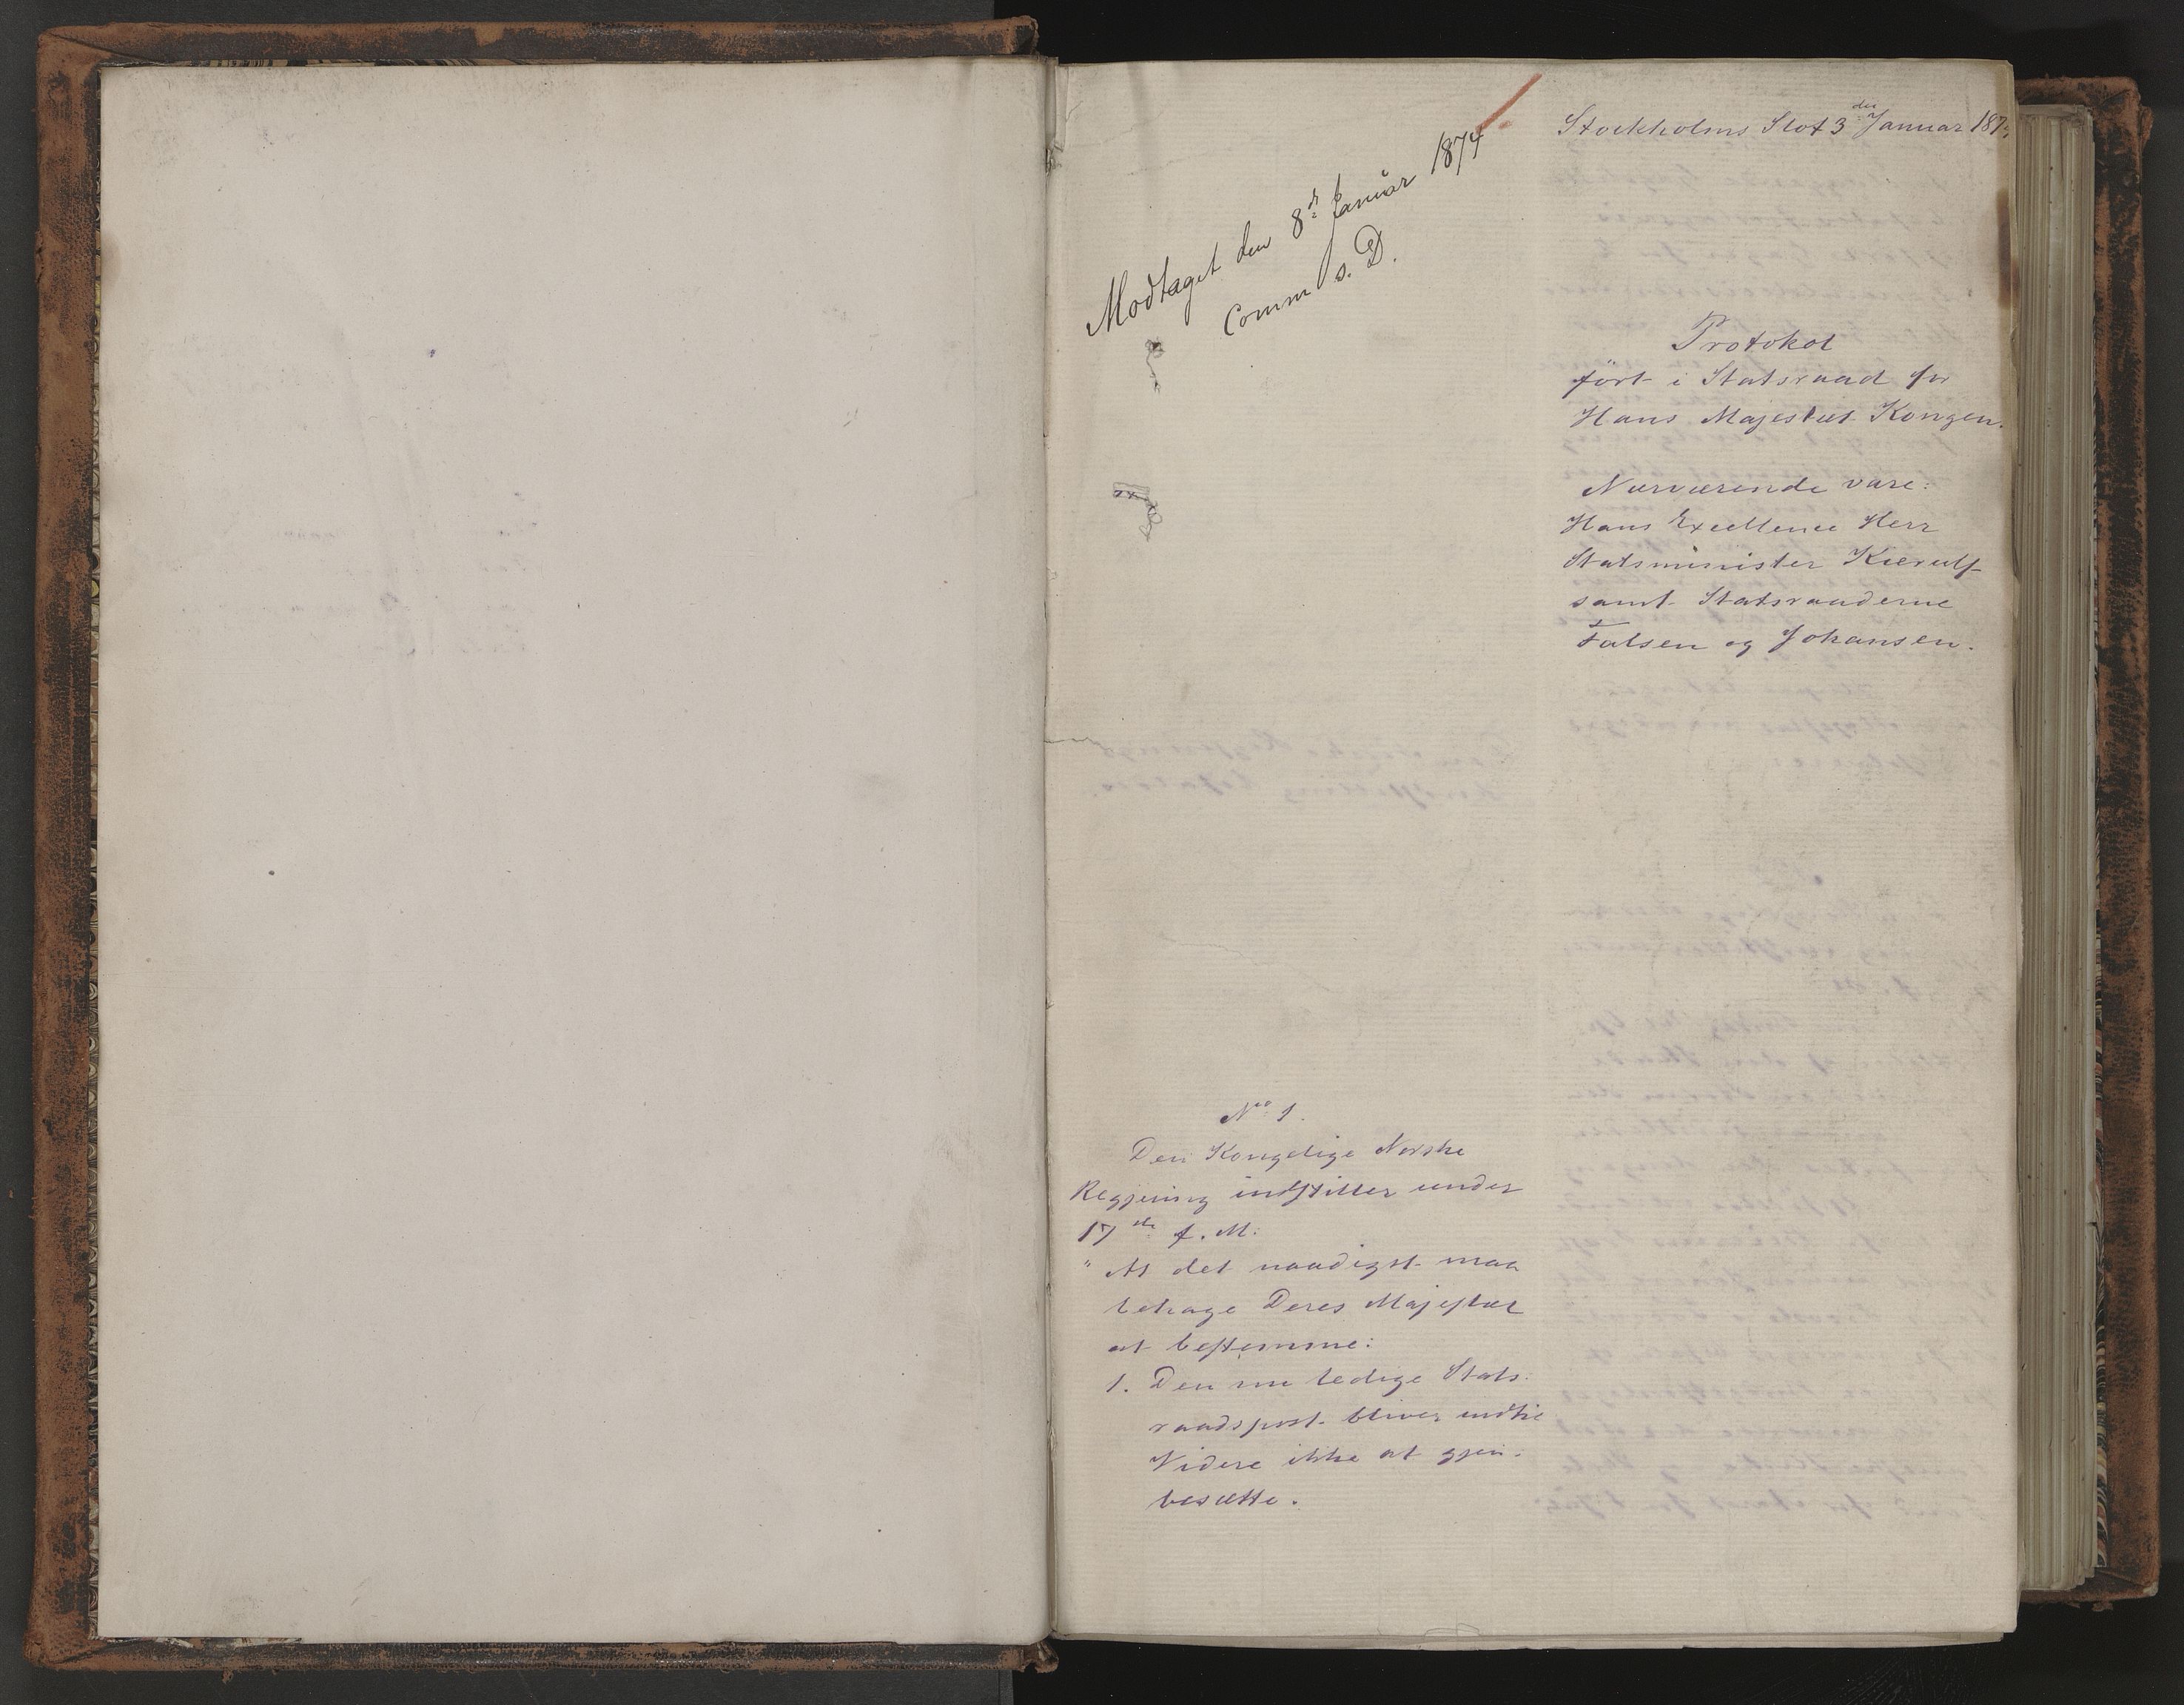 Stockholms Slot 3die Januar 187
Modtaget den 8de Januar 1874
Comm s. D.
Protokol
ført i Statsraad for
Hans Majestæt Kongen.
Nærværende vare:
Hans Excellence Herr
Statsminister Kierulf
samt Statsraaderne
Falsen og Johansen.
No 1.
Den Kongelige Norske
Regjering indstiller under
17de f. M:
"At det naadigst maa
behage Deres Majestæt
at bestemme:
1. Den nu ledige Stats-
raadspost bliver indtil
Videre ikke at gjen-
besætte.